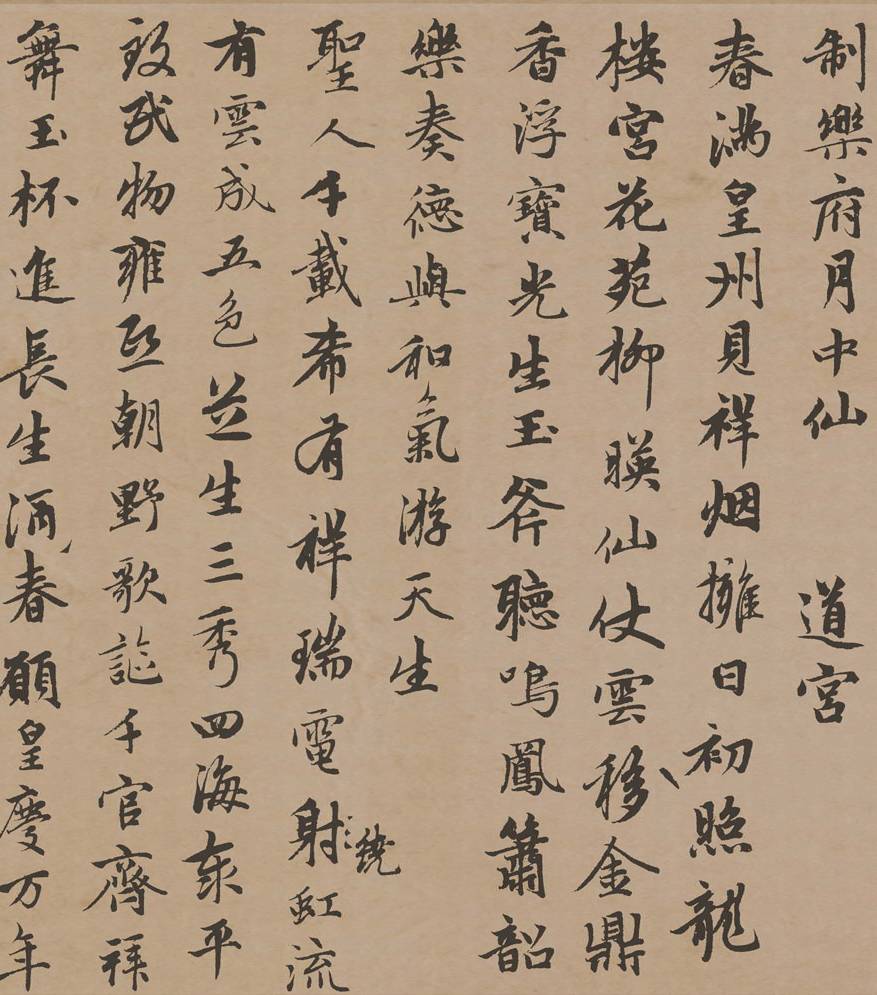 制樂府月中仙 道宮
春滿皇州見祥烟擁日初照龍
楼宮花苑柳暎仙仗雲移金鼎
香浮寶光生玉斧聽鳴鳳簫韶
樂奏德與和氣游天生
聖人千載希有祥瑞電繞虹流
有雲成五色芝生三秀四海泰平
致民物雍熙朝野歌謳千官齊拜
舞玉杯進長生酒春願皇慶万年